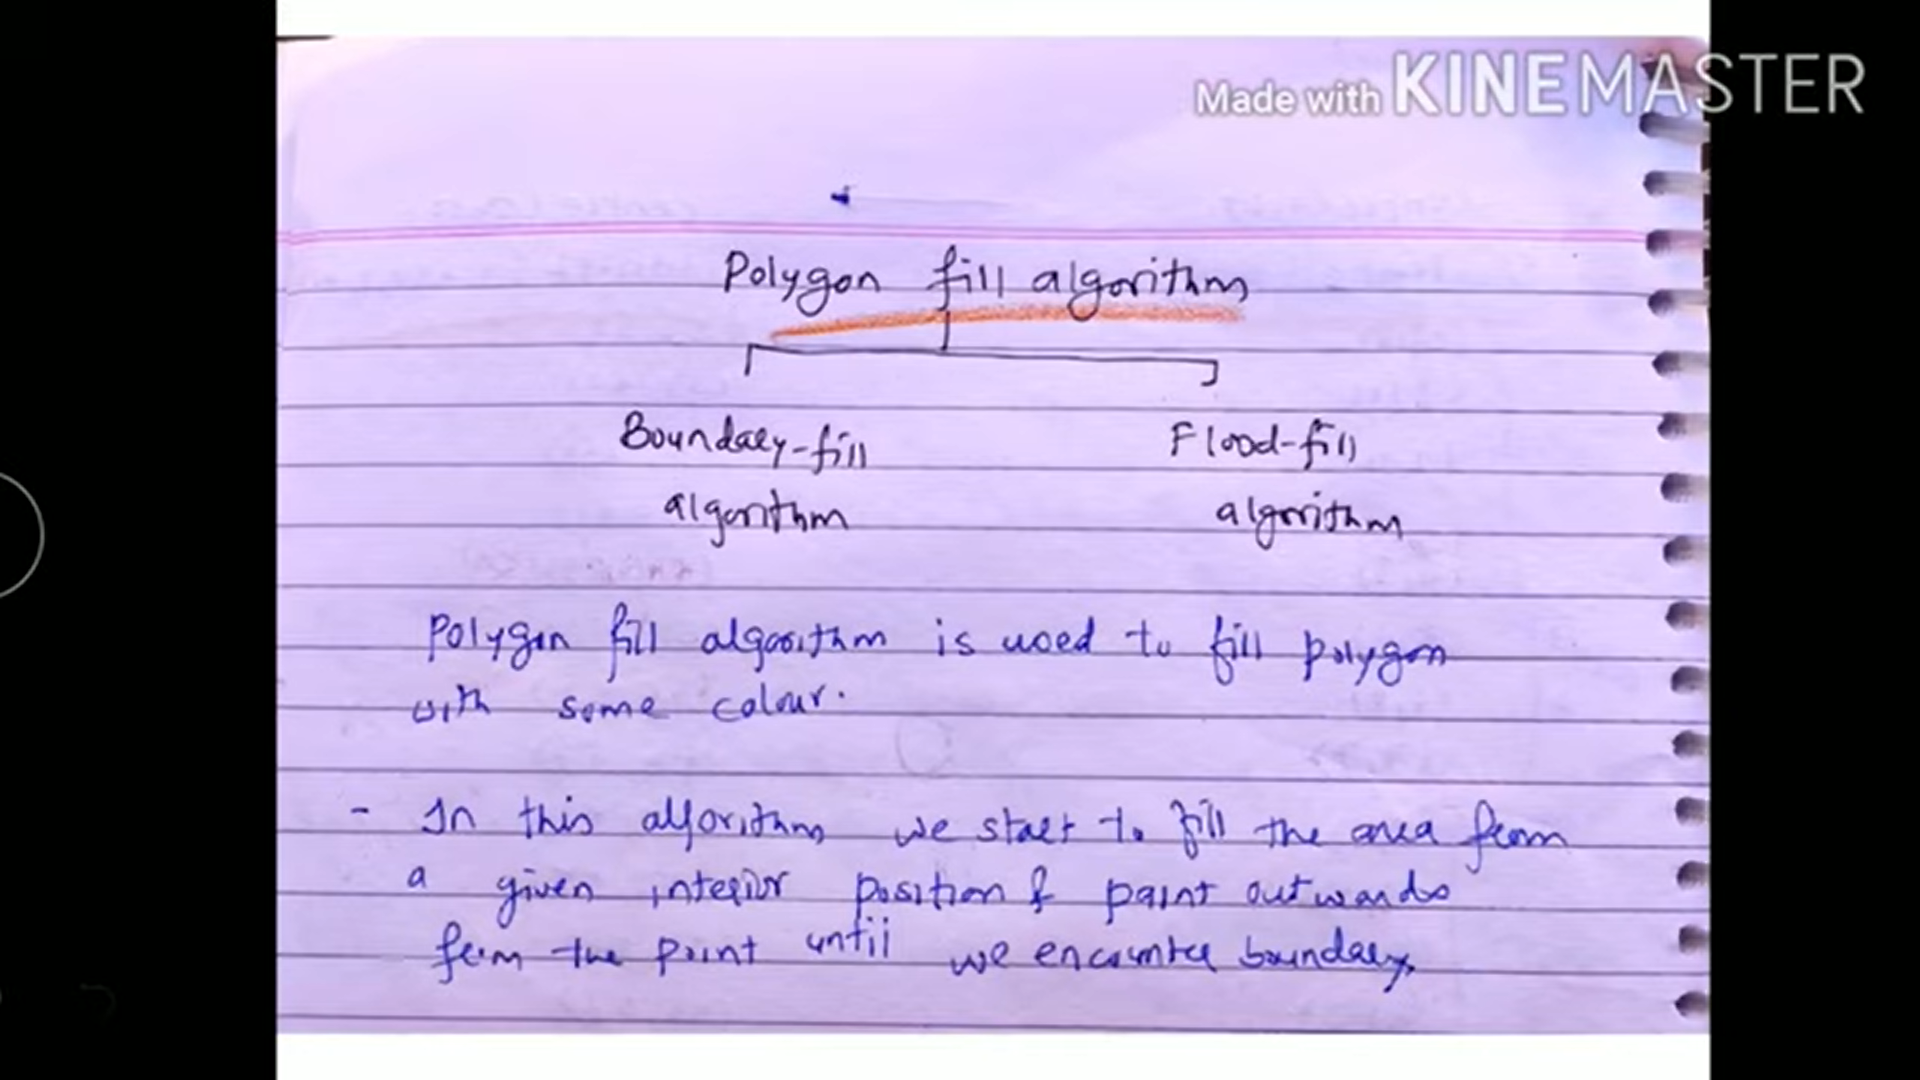 Made with KINEMASTER
Polygon fill algorithm
Boundary-fill
algorithm
Flood-fill
algorithm
Polygon fill algorithm is used to fill polygon
with some colour.
- In this algorithm we start to fill the area from
a given interior position & paint outwards
from the point until we encounter boundary.